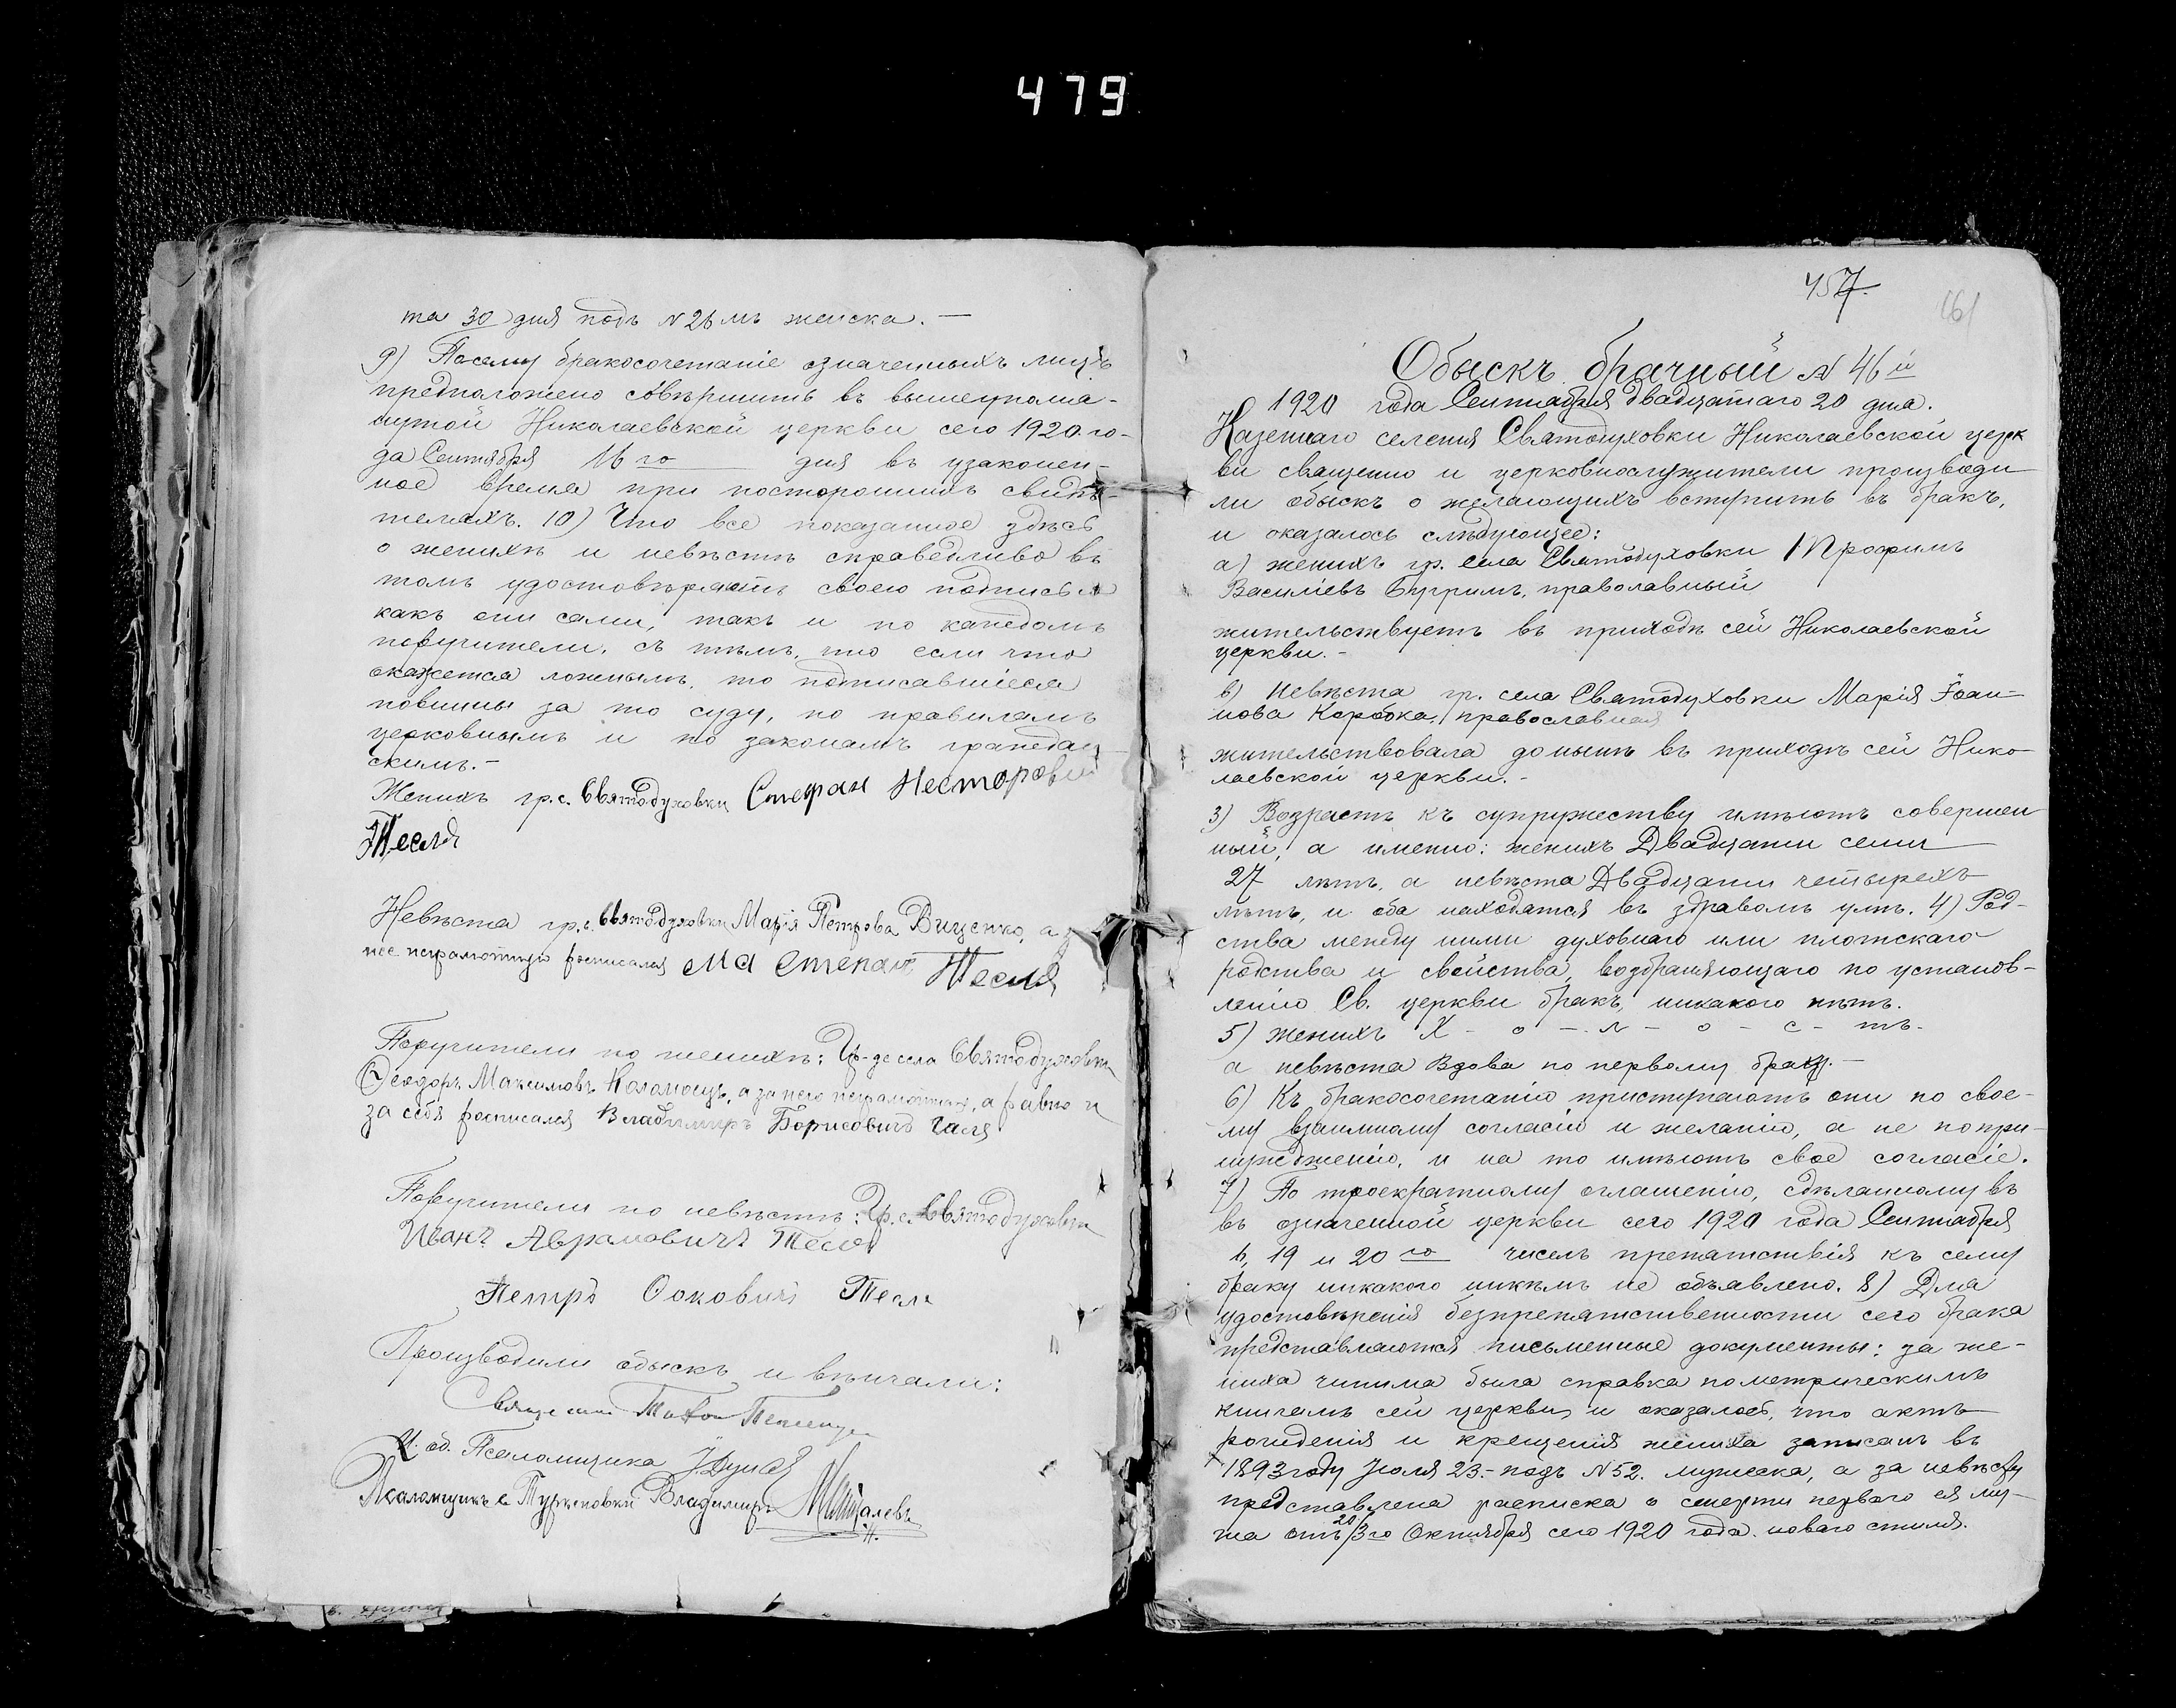 479
та 30 дня подъ N 26 мъ женска. —
9) Посему бракосочетаніе означенныхъ лицъ
предположено совершить въ вышеупомя-
нутой Николаевской церкви сего 1920. го-
да Сентября 16 го дня въ узаконен-
ное время при постороннихъ свидѣ-
теляхъ. 10) Что все показанное здѣсь
о женихѣ и невѣстѣ справедливо въ
томъ удостовѣряютъ своею подписью
какъ они сами, такъ и по каждомъ
поручители, съ тѣмъ, что если что
окажется ложнымъ, то подписавшіеся
повинны за то суду, по правиламъ
церковнымъ и по законамъ граждан-
скимъ. -
Женихъ гр. с. Святодуховки Стефан Несторовъ
Тесля
Невѣста гр. с. Святодуховки Марія Петрова Виценко, а за
нее неграмотную росписался Степан Тесля
Поручители по женихѣ: Гр-не села Святодуховки
Ѳеодоръ Максимовъ Коломоецъ, а за него неграмотнаго, а равно и
за себя росписался Владимиръ Борисовичъ
Поручители по невѣстѣ: Гр. с. Святодуховки
Иванъ Аврамовичъ Тесля
Петро Тесля
Производили обыскъ и вѣнчали:
Священникъ
И. об. Псаломщика
Псаломщикъ с. Владимиръ
457.
161
Обыскъ брачный N 46 й
1920 года Сентября двадцатаго 20 дня.
Казеннаго селенія Святодуховки Николаевской церк
ви священно и церковнослужители производи
ли обыскъ о желающихъ вступить въ бракъ,
и оказалось слѣдующее:
а) женихъ гр. села Святодуховки Трофимъ
Василіевъ Бугримъ, православный
жительствуетъ въ приходѣ сей Николаевской
церкви. -
в) невѣста гр. села Святодуховки Марія Іоан-
нова Коробка, православная
жительствовала донынѣ въ приходѣ сей Нико-
лаевской церкви. -
3) Возрастъ къ супружеству имѣютъ совершен
ный, а именно: женихъ Двадцати семи
27 лѣтъ, а невѣста Двадцати четырехъ
лѣтъ, и оба находятся въ здравомъ умѣ. 4) Род-
ства между ними духовнаго или плотскаго
родства и свойства, возбраняющаго по установ-
ленію Св. церкви бракъ, никакого нѣтъ.
5) женихъ Х - о - л - о - с - тъ -
а невѣста Вдова по первому браку. —
6) Къ бракосочетанію приступаютъ они по свое-
му взаимному согласію и желанію, а не по при-
нужденію, и на то имѣютъ свое согласіе.
7) По троекратному оглашенію, сдѣланному въ
въ означенной церкви сего 1920 года Сентября
6, 19 и 20 го чиселъ препятствія къ сему
браку никакого никѣмъ не объявлено. 8) Для
удостовѣренія безпрепятственности сего брака
представляются письменные документы: за же-
ниха чинима была справка по метрическимъ
книгамъ сей церкви, и оказалось, что актъ
рожденія и крещенія жениха записанъ въ
1893 году Іюля 23. - подъ N 52. мужеска, а за невѣсту
представлена расписка о смерти перваго ея му-
жа отъ 20/3 го Октября сего 1920 года. новаго стиля.